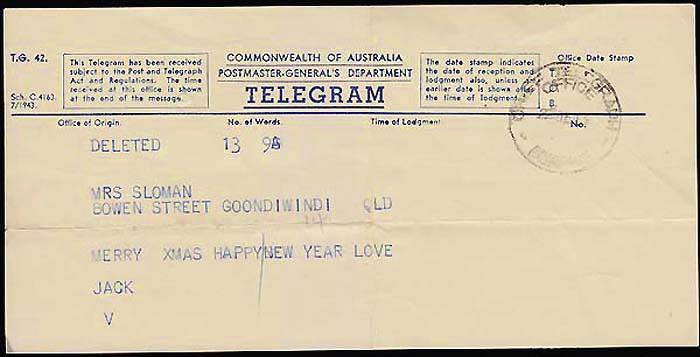 T.G. 42.
Sch. C.4163.
7/1943.
This Telegram has been received
subject to the Post and Telegraph
Act and Regulations. The time
received at this office is shown
at the end of the message.
COMMONWEALTH OF AUSTRALIA
POSTMASTER-GENERAL'S DEPARTMENT
TELEGRAM
The date stamp indicates
the date of reception and
lodgment also, unless an
earlier date is shown after
the time of lodgment.
Office Date Stamp
T.
O.
B.
OFFICE
Office of Origin.
No. of Words.
Time of Lodgment.
No.
DELETED 13
MRS SLOMAN
BOWEN STREET GOONDIWINDI QLD
14
MERRY XMAS HAPPY/NEW YEAR LOVE
JACK
V